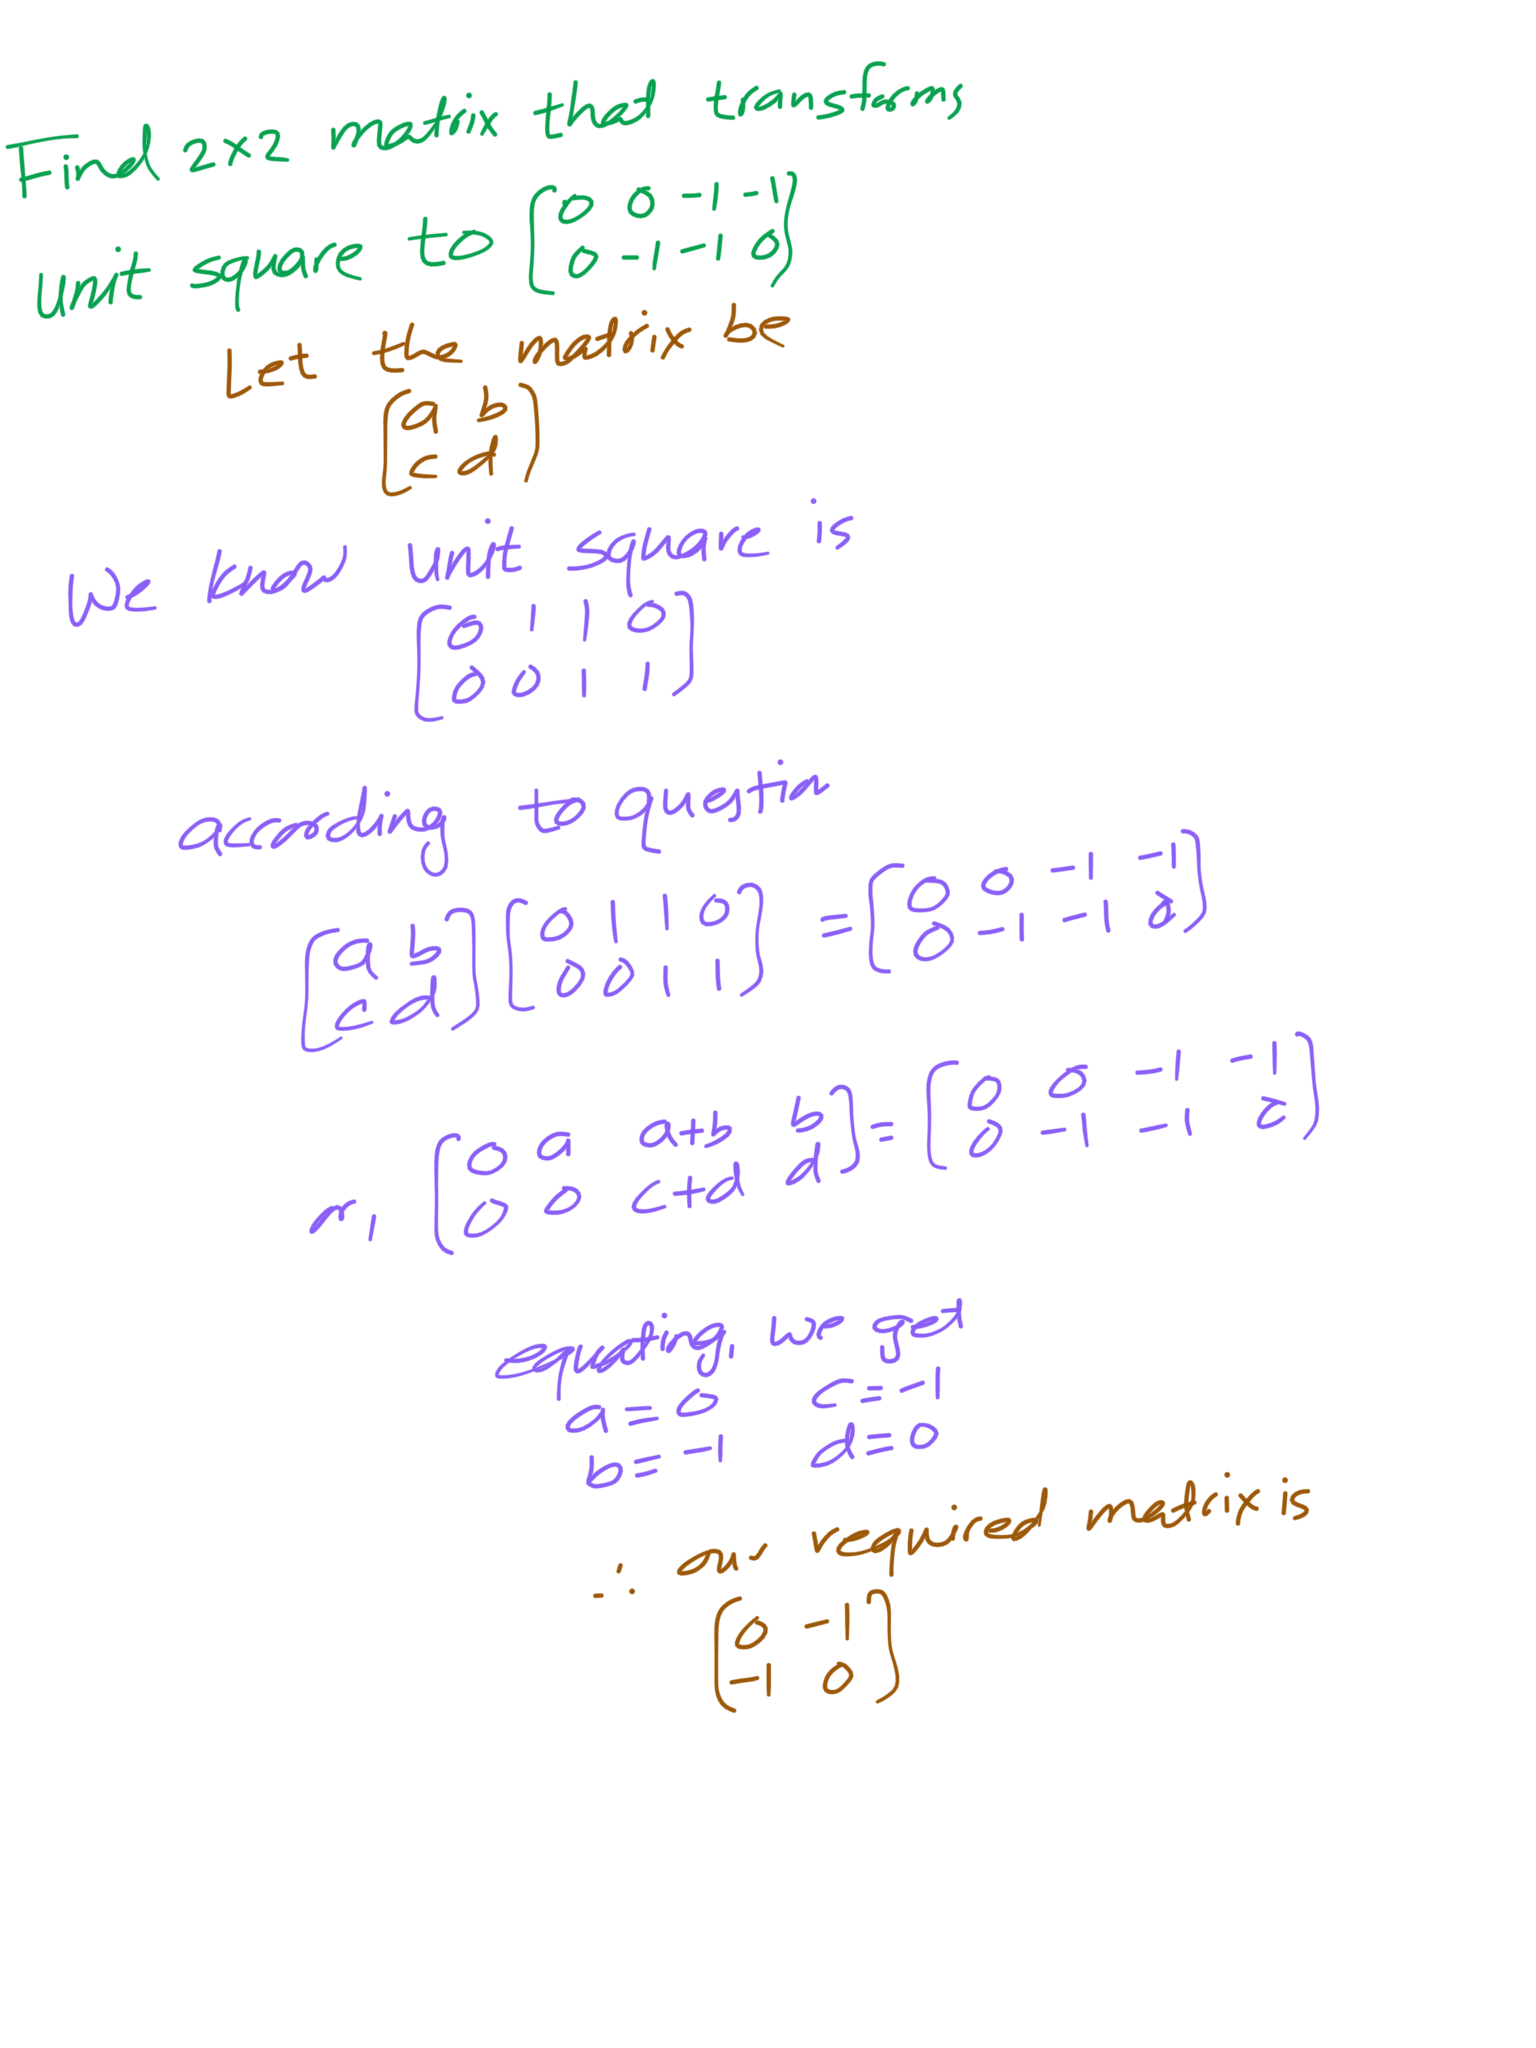 Find 2×2 matrix that transforms
unit square to [0 0 -1 -1
0 -1 -1 0]
Let the matrix be
[a b
c d]
We know unit square is
[0 1 1 0
0 0 1 1]
according to question
[a b
c d] [0 1 1 0
0 0 1 1] = [0 0 -1 -1
0 -1 -1 0]
or, [0 a a+b b
0 0 c+d d] = [0 0 -1 -1
0 -1 -1 0]
equating, we get
a=0 c=-1
b=-1 d=0
∴ our required matrix is
[0 -1
-1 0]